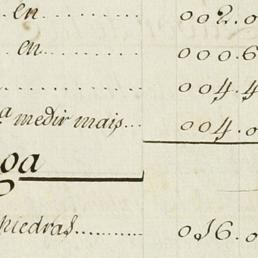 en.......... 002.0
en.......... 000.6
............ 004.4
a medir mais... 004.0
ga
piedras.......... 016.0